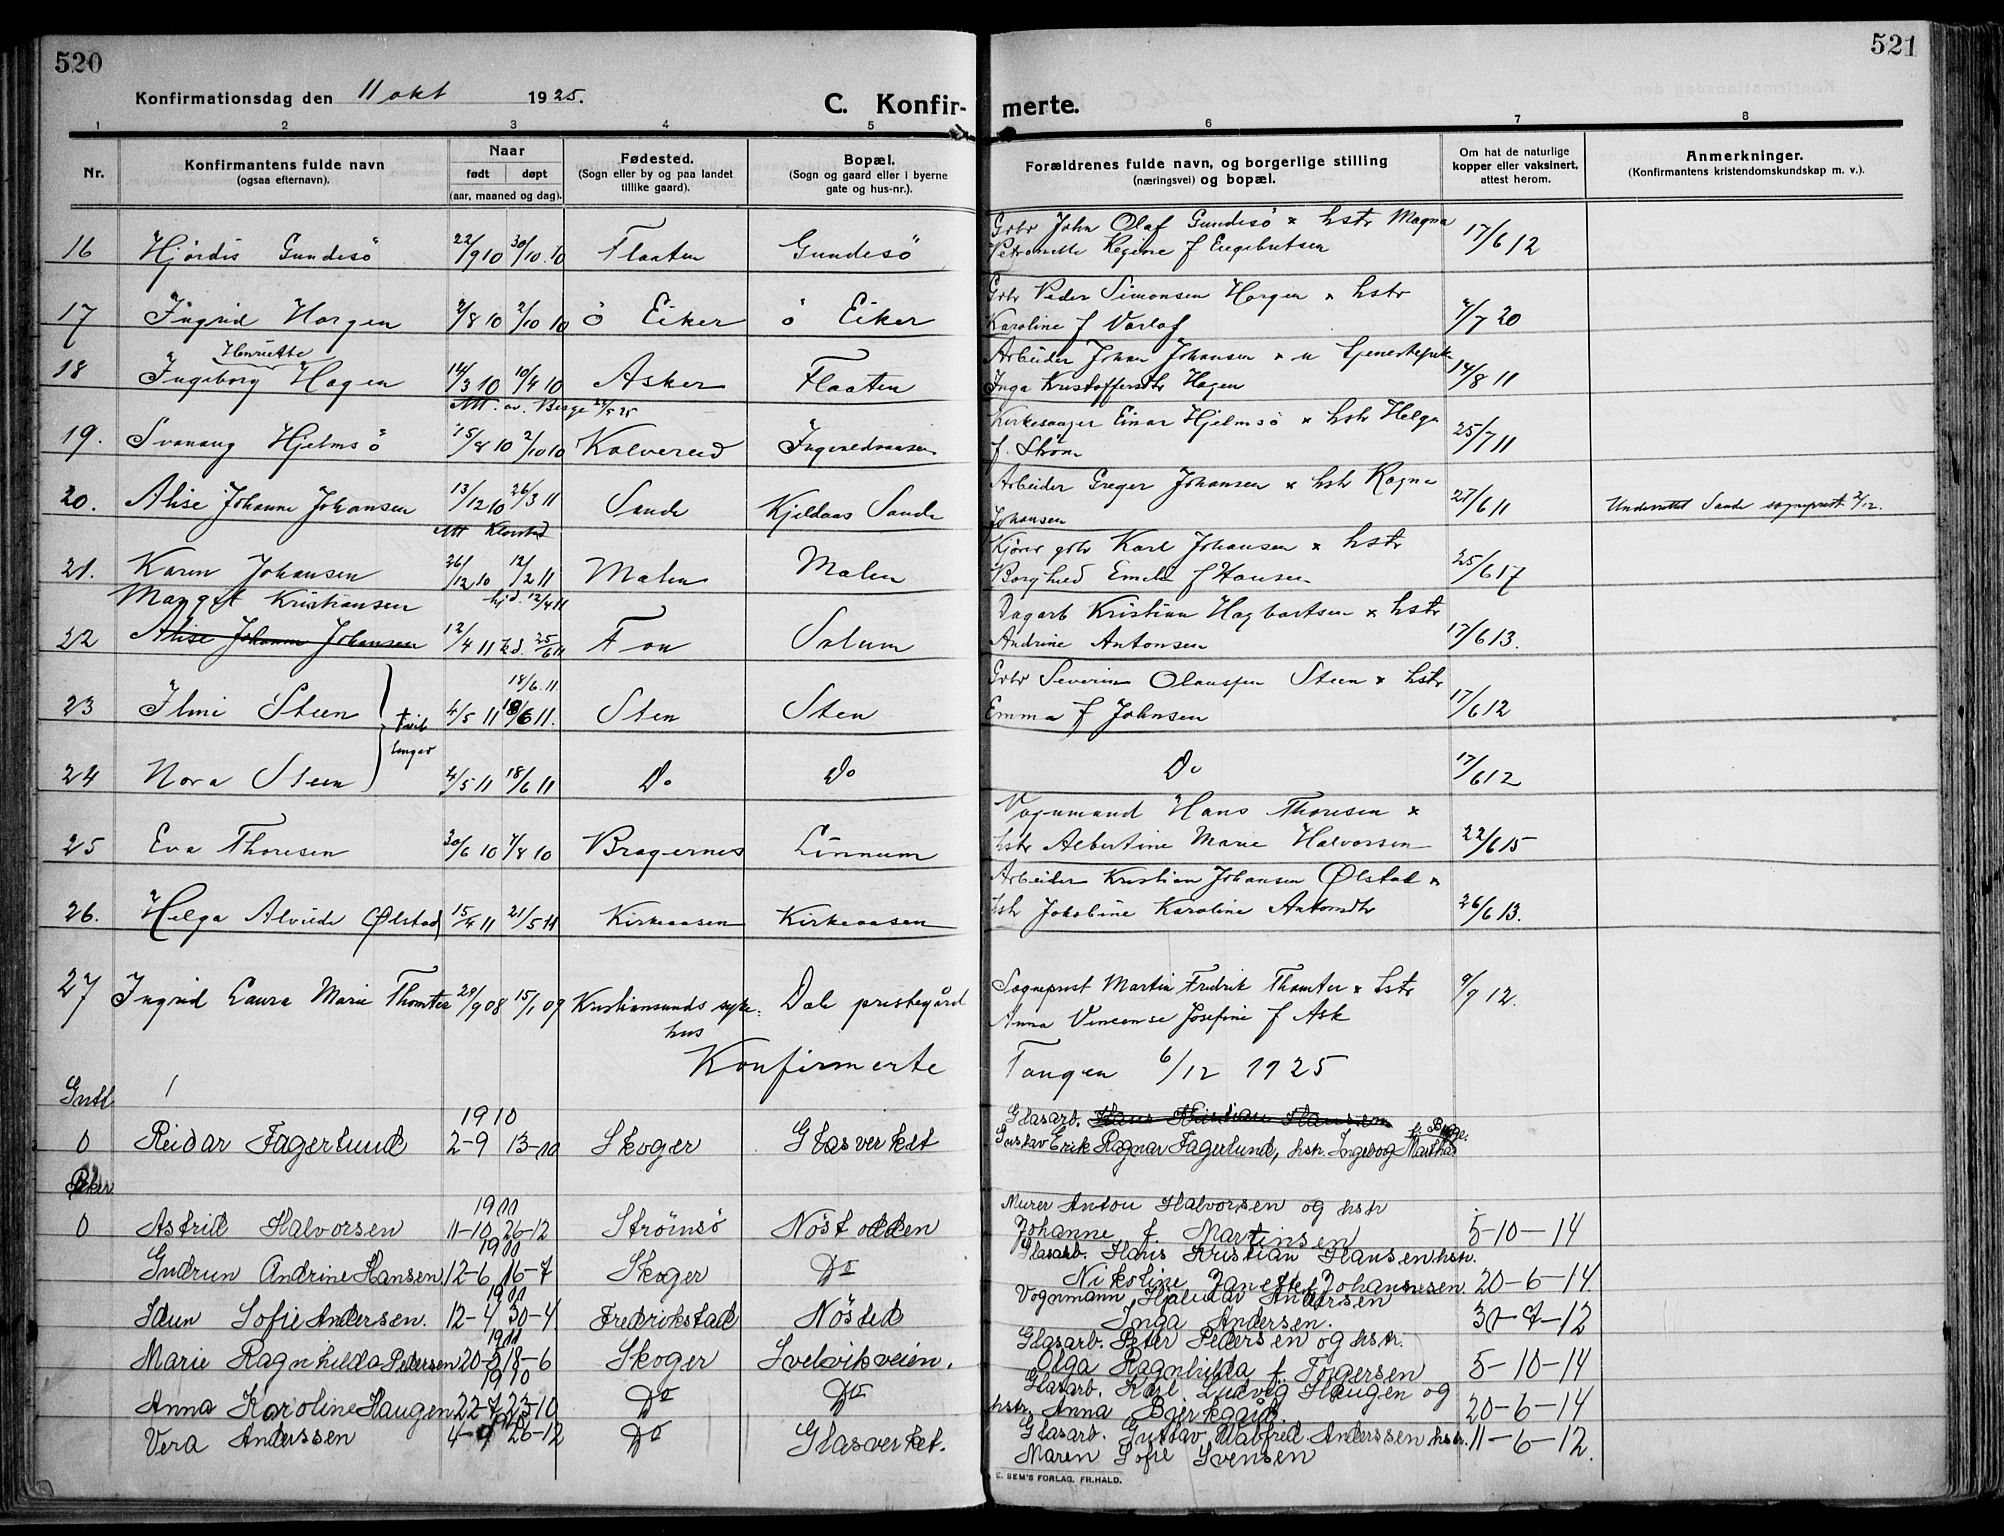 520
521
Konfirmationsdag den 11 okt 1925.
C. Konfirmerte.
1 2 3 4 5 6 7 8
Nr.
Konfirmantens fulde navn
(ogsaa efternavn).
Naar
født døpt
(aar, maaned og dag).
Fødested.
(Sogn eller by og paa landet
tillike gaard).
Bopæl.
(Sogn og gaard eller i byerne
gate og hus-nr.).
Forældrenes fulde navn, og borgerlige stilling
(næringsvei) og bopæl.
Om hat de naturlige
kopper eller vaksinert,
attest herom.
Anmerkninger.
(Konfirmantens kristendomskundskap m. v.).
Gbr John Olaf Gundesö x hstr Magna
16 Hjördis Gundesö 22/9 10 30/10.10 Flaaten Gundesö Petronelle Regine f Engebretsen 17/6 12
Gbr Peder Simonsen Horgen x hstr
17 Ingrid Horgen 2/8 10 2/10 10 ö Eiker ö Eiker Karoline f Varlof 4/7 20
Henriette
Arbeider Johan Johansen x u
18 Ingeborg Hagen 14/3 10 10/4 10 Asker Flaaten Inga Kristoffersdtr Hagen 14/8 11
Att. av. Berge 24/5 25
Kirkesanger Einar Hjelmsö x hstr Helga
19. Svanaug Hjelmsö 15/8 10 2/10 10 Kalvereid Ingvaldsaasen f. Ström 25/7 11
Arbeider Greger Johansen x hstr Ragna
20. Alise Johanne Johansen 13/12 10 26/3 11 Sande Kjeldaas Sande Johansen 27/6 11 Underrettet Sande sogneprest 2/12.
Att Klovstad
Kjörer gbr Karl Johansen x hstr
21. Karen Johansen 26/12 10 12/2 11 Malen Malen Borghild Emelie f Hansen 25/6 17
Margot Kristiansen hjd. 12/4 11 Dagarb Kristian Hagbartsen x hstr
22 Alise Johanne Johansen 12/4 11 kd. 25/6 11 Fon Solum Andrine Antonsen 17/6 13.
18/6.11. Gbr Severin Olaussen Steen x hstr
23 Ilmi Steen 4/5 11 18/6 11. Sten Sten Emma f Johnsen 17/6 12
tvil
linger
24 Nora Steen 4/5 11 18/6 11 Do Do Do 17/6 12
Vognmand Hans Thoresen x
25 Eva Thoresen 30/6 10 7/8 10 Bragernes Linnum hstr Albertine Marie Halvorsen 22/6 15
Arbeider Kristian Johansen Ølstad x
26. Helga Alvilde Ølstad 15/4 11 21/5 11 Kirkeaasen Kirkeaasen hstr Jakobine Karoline Antonsdtr 26/6 13.
27 Ingrid Laura Marie Thomter 29/9 08 15/1 09 Kristiansunds syke- Dal prestegård Sogneprest Martin Fredrik Thomter x hstr 9/9 12.
hus Anna Vincense Josefine f Ask
Konfirmerte Tangen 6/12 1925
Gutt 1
1910 Glasarb. Hans Kristian Hansen
0 Reidar Fagerlund 2-9 13-10 Skoger Glasverket Gustav Erik Ragnar Fagerlund, hstr. Ingeborg Martha f. Bugge.
Piker
1911 Murer Anton Halvorsen og hstr
0 Astrid Halvorsen 11-10 26-12 Strömsö Nöstodden Johanne f. Martinsen 5-10-14
1911 Glasarb. Hans Kristian Hansen hstr.
Gudrun Andrine Hansen 12-6 16-7 Skoger Do Nikoline Janette f Johannesen. 20-6-14.
1911 Vognmann Hjalmar Andersen
Idun Sofie Andersen. 12-4 30-4 Fredrikstad Nösted Inga Andersen. 30-7-12
1911 Glasarb. Peter Pedersen og hstr.
Marie Ragnhilda Pedersen 20-5 18-6 Skoger Svelvikveien. Olga Ragnhilda f. Torgersen 5-10-14
1910 Glasarb. Karl Ludvig Haugen og
Anna Karoline Haugen 22-7 23-10 Do Do hstr. Anna Bjerkgård. 20-6-14
1910 Glasarb. Gustav Walfred Anderssen hstr.
Vera Anderssen 4-9 26-12 Do Glasverket. Maren Sofie Svensen 11-6-12.
E. SEM'S FORLAG, FR.HALD.